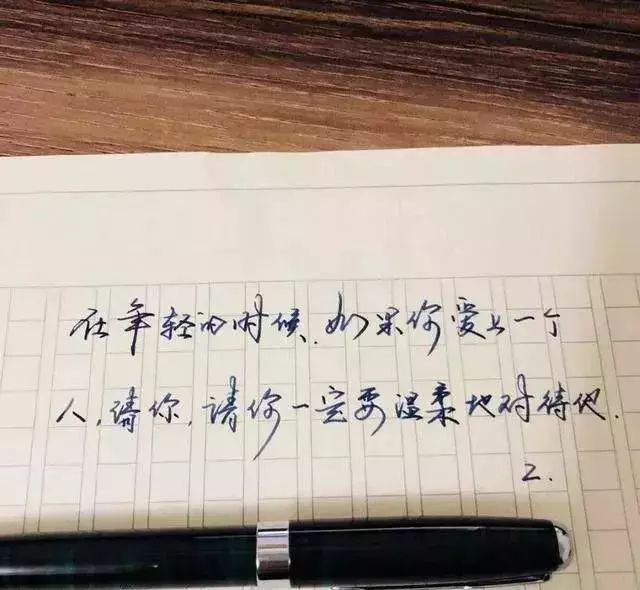 在年轻的时候,如果你爱上一个
人,请你,请你一定要温柔地对待他.
2.